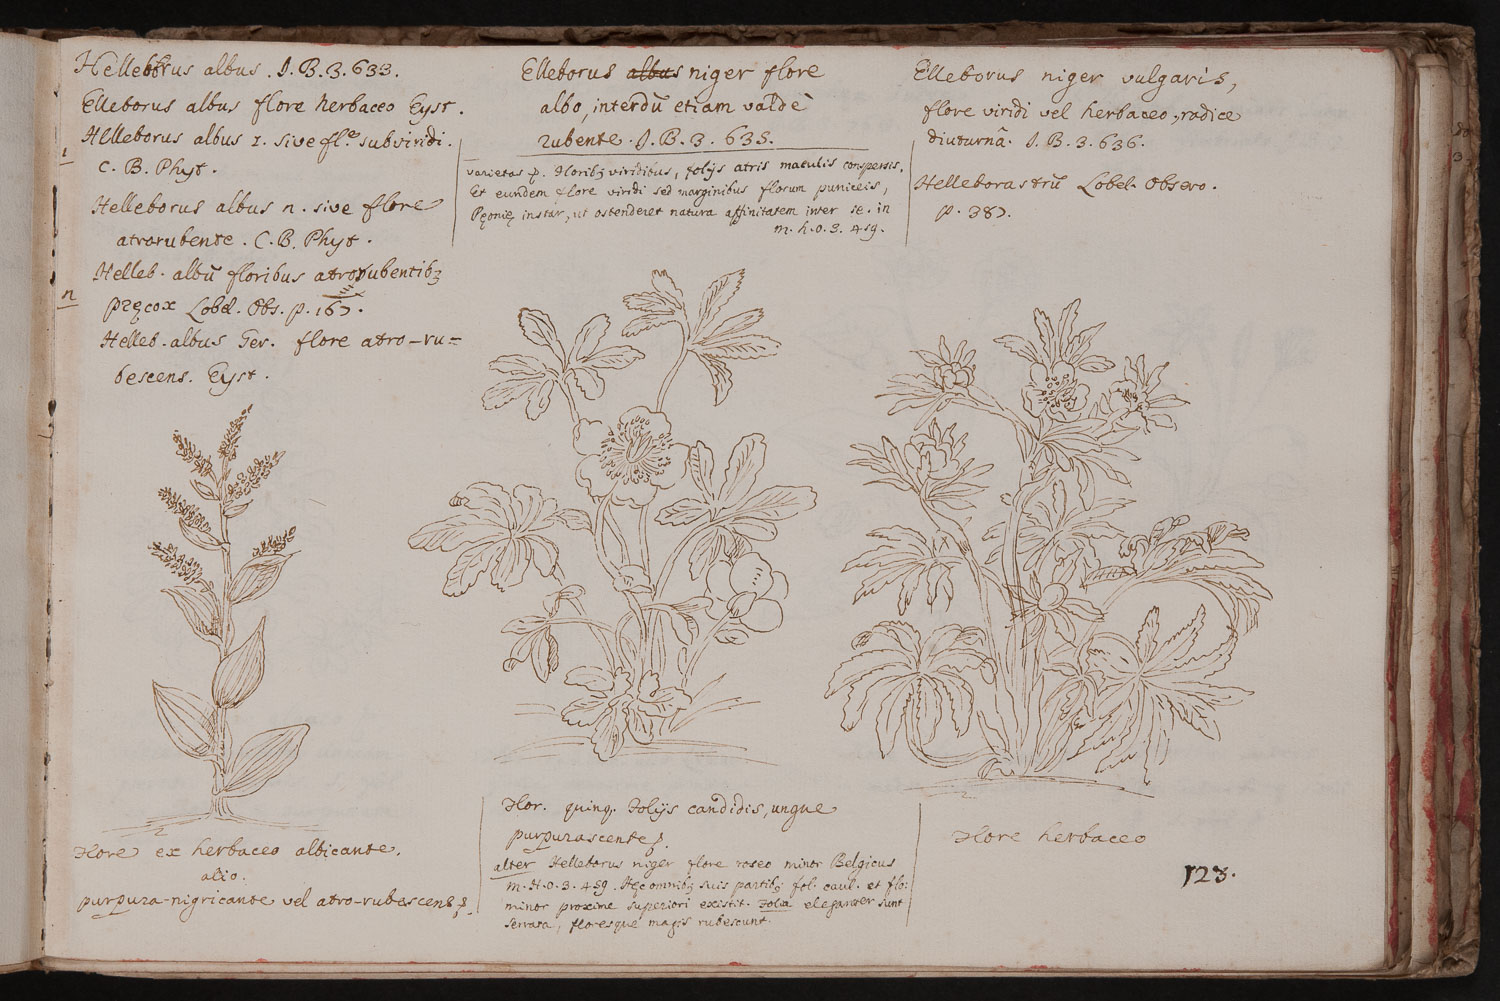 Helleborus albus. J.B.3.633.
Elleborus albus flore herbaceo Eyst.
Helleborus albus 1. sive fl.e subviridi.
1
C. B. Phyt.
Helleborus albus n. sive flore
atrorubente. C.B. Phyt.
Helleb. albũ floribus atrorubentibꝫ
n
pręcox Lobel. Obs. p. 167.
Helleb. albus Ger. flore atro-ru=
bescens. Eyst.
Flore ex herbaceo albicante.
alio.
purpura-nigricante vel atro-rubescente
Elleborus albus niger flore
albo, interdũ etiam valdè
rubente. J.B.3.635.
varietas p. floribꝫ viridibus, folijs atris maculis conspersis.
Et eundem flore viridi sed marginibus florum puniceis,
Pęonię instar, ut ostenderet natura affinitatem inter se. in
m.h.o.3.459.
Flor. quinq. Folijs candidis, ungue
purpurascente
alter Helleborus niger flore roseo minor Belgicus
m.H.o.3.459. Hęc omnibꝫ suis partibꝫ fol. caul. et flo:
minor proxime superiori existit. Folia eleganter sunt
serrata, floresque magis rubescunt.
Elleborus niger vulgaris,
flore viridi vel herbaceo, radice
diuturnâ. J.B.3.636.
Helleborastrũ Lobel. Observ.
p. 387.
Flore herbaceo
123.